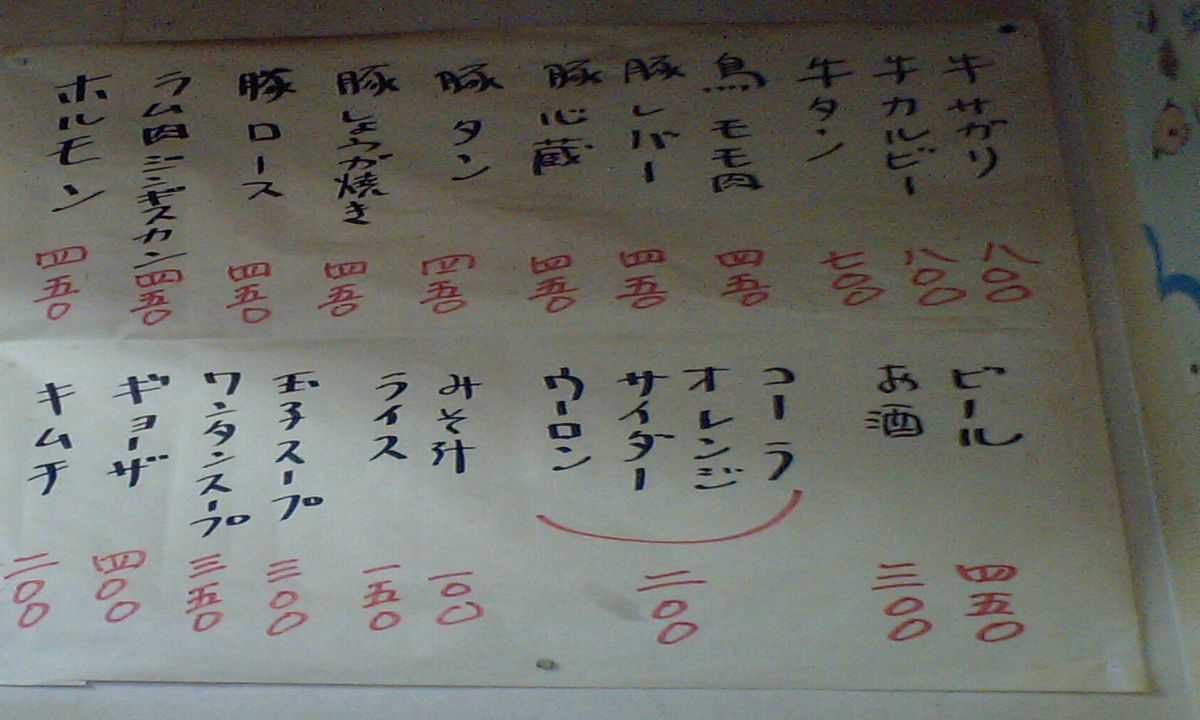 牛サガリ 八〇〇
牛カルビー 八〇〇
牛タン 七〇〇
鳥モモ肉 四五〇
豚レバー 四五〇
豚心蔵 四五〇
豚タン 四五〇
豚しょうが焼き 四五〇
豚ロース 四五〇
ラム肉ジンギスカン 四五〇
ホルモン 四五〇
ビール 四五〇
お酒 三〇〇
コーラ
オレンジ
サイダー
ウーロン
二〇〇
みそ汁 一〇〇
ライス 一五〇
玉子スープ 三〇〇
ワンタンスープ 三五〇
ギョーザ 四〇〇
キムチ 二〇〇